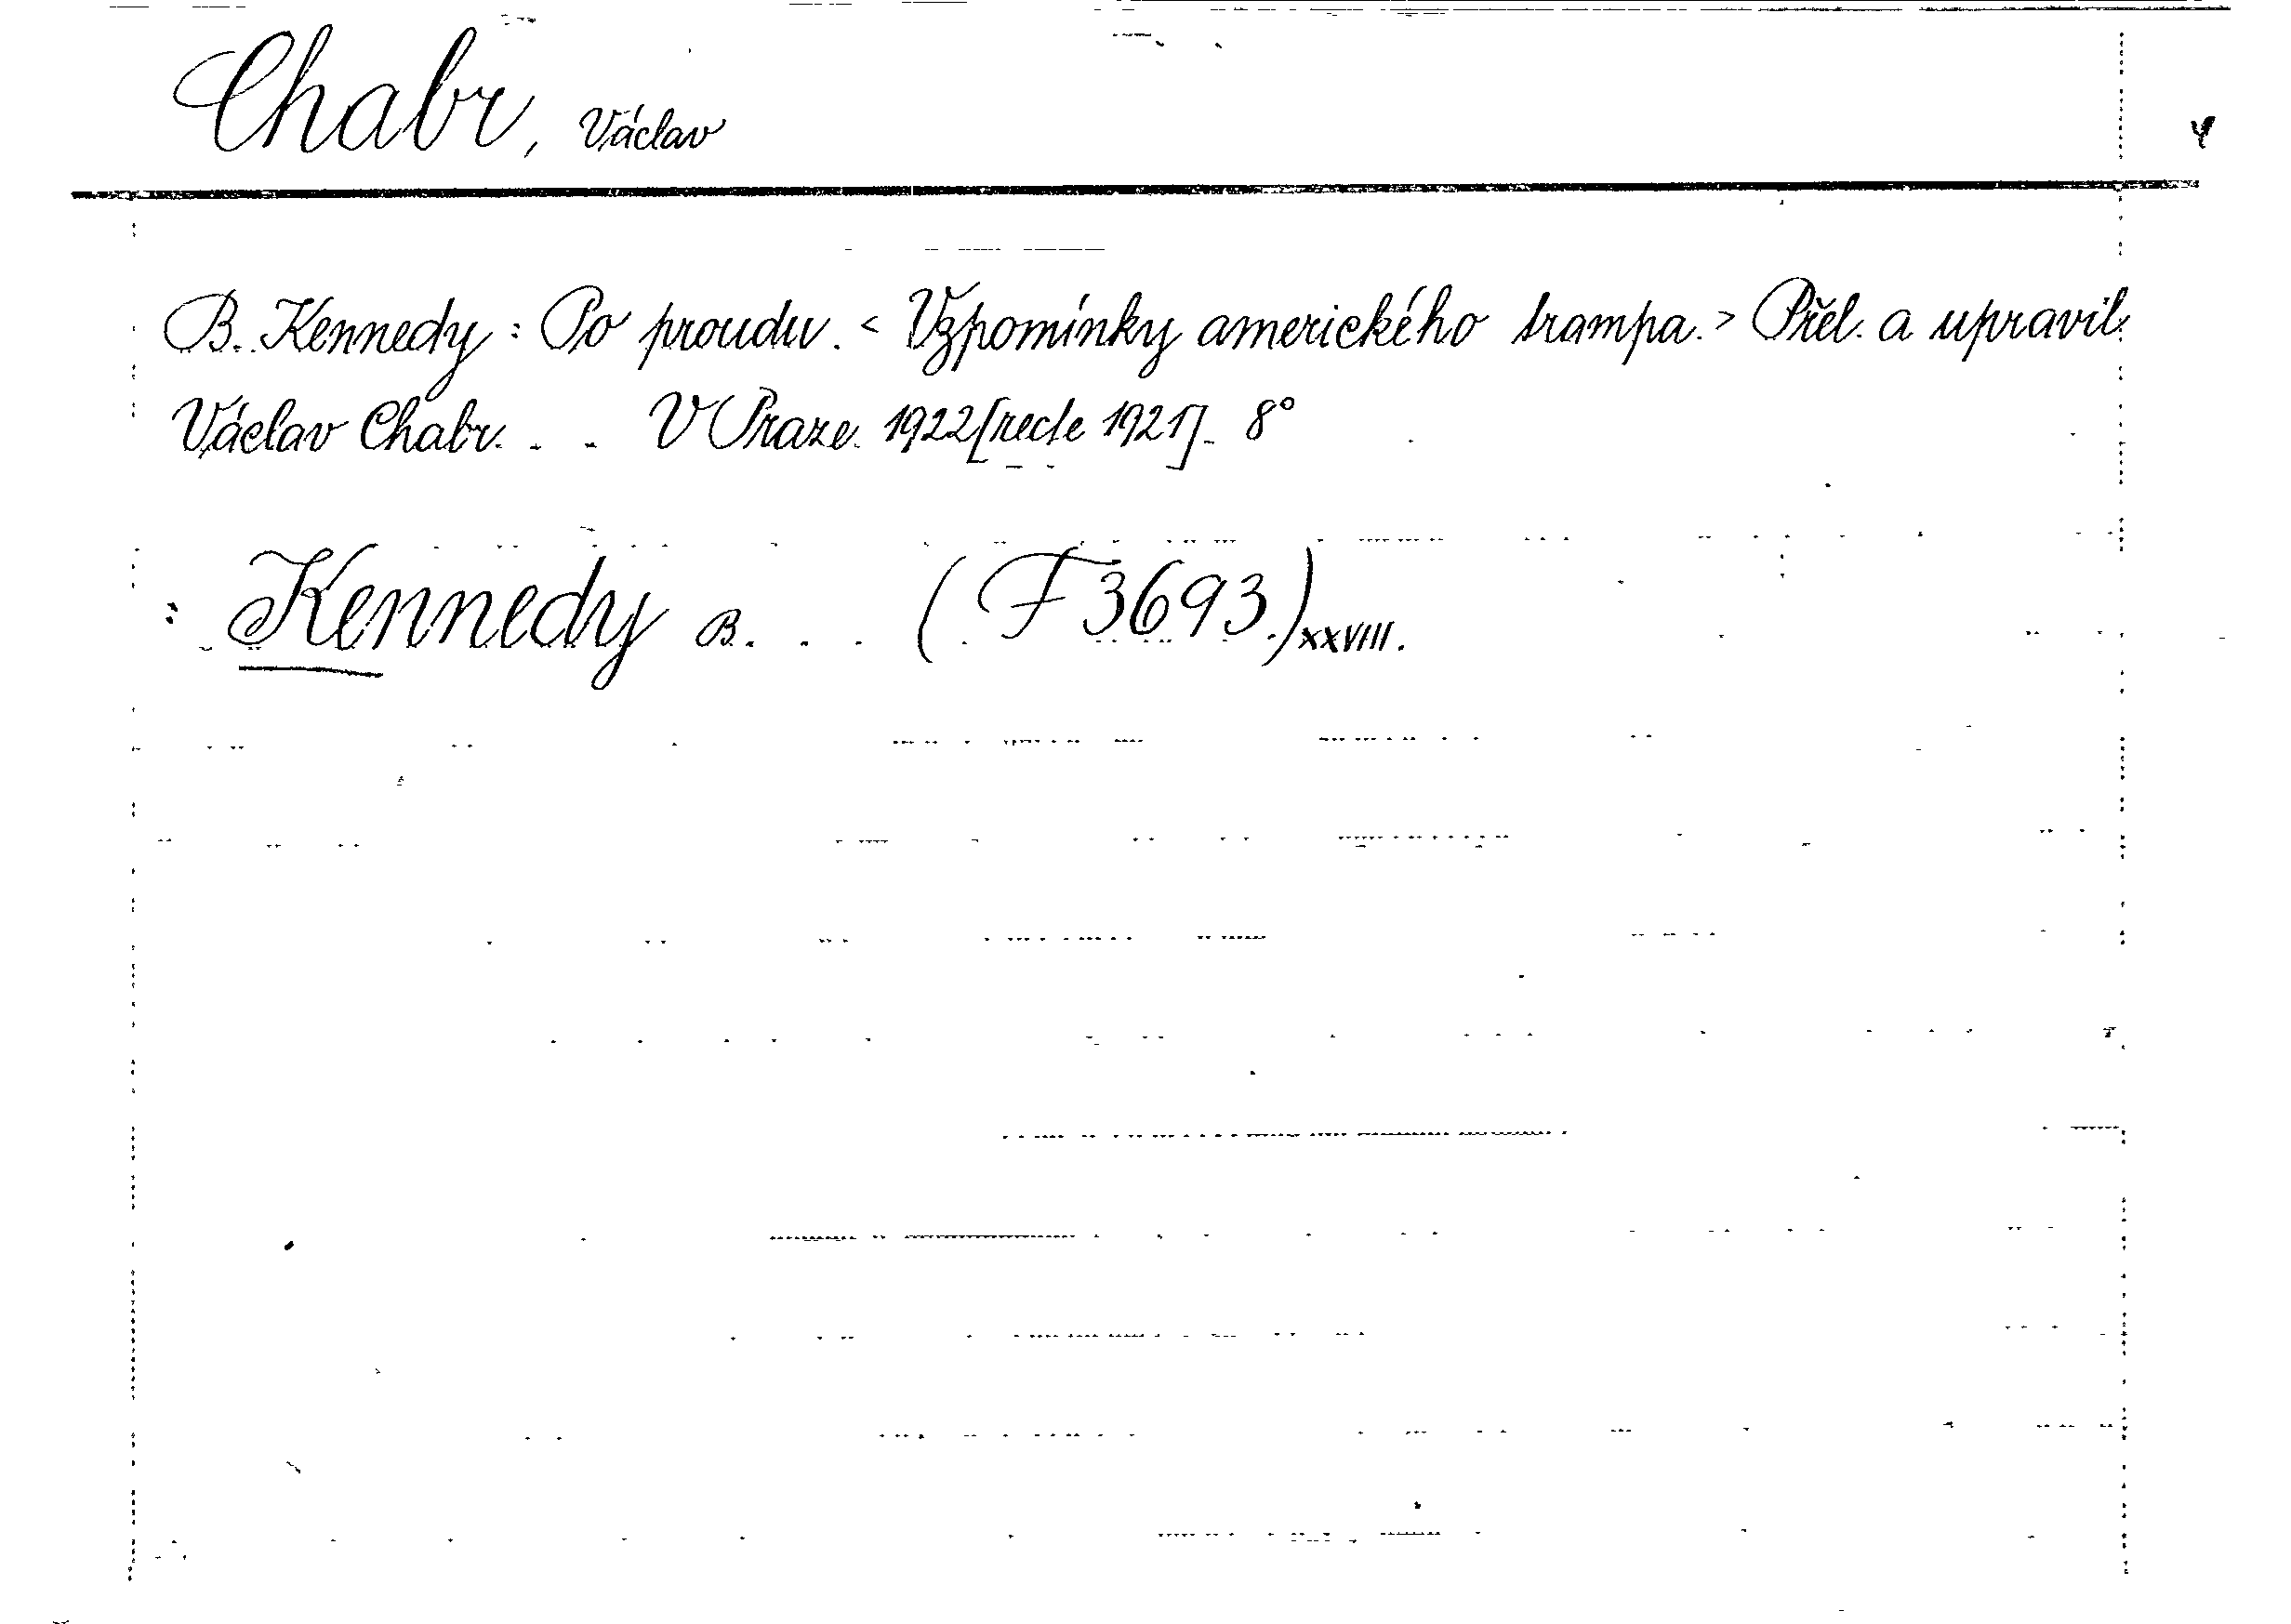 Chabr, Václav
4
B. Kennedy: Po proudu. < Vzpomínky amerického trampa. > Přel. a upravil
Václav Chabr. . . V Praze. 1922 [recte 1921]. 8°
: Kennedy B. . . (F 3693.) XXVIII.